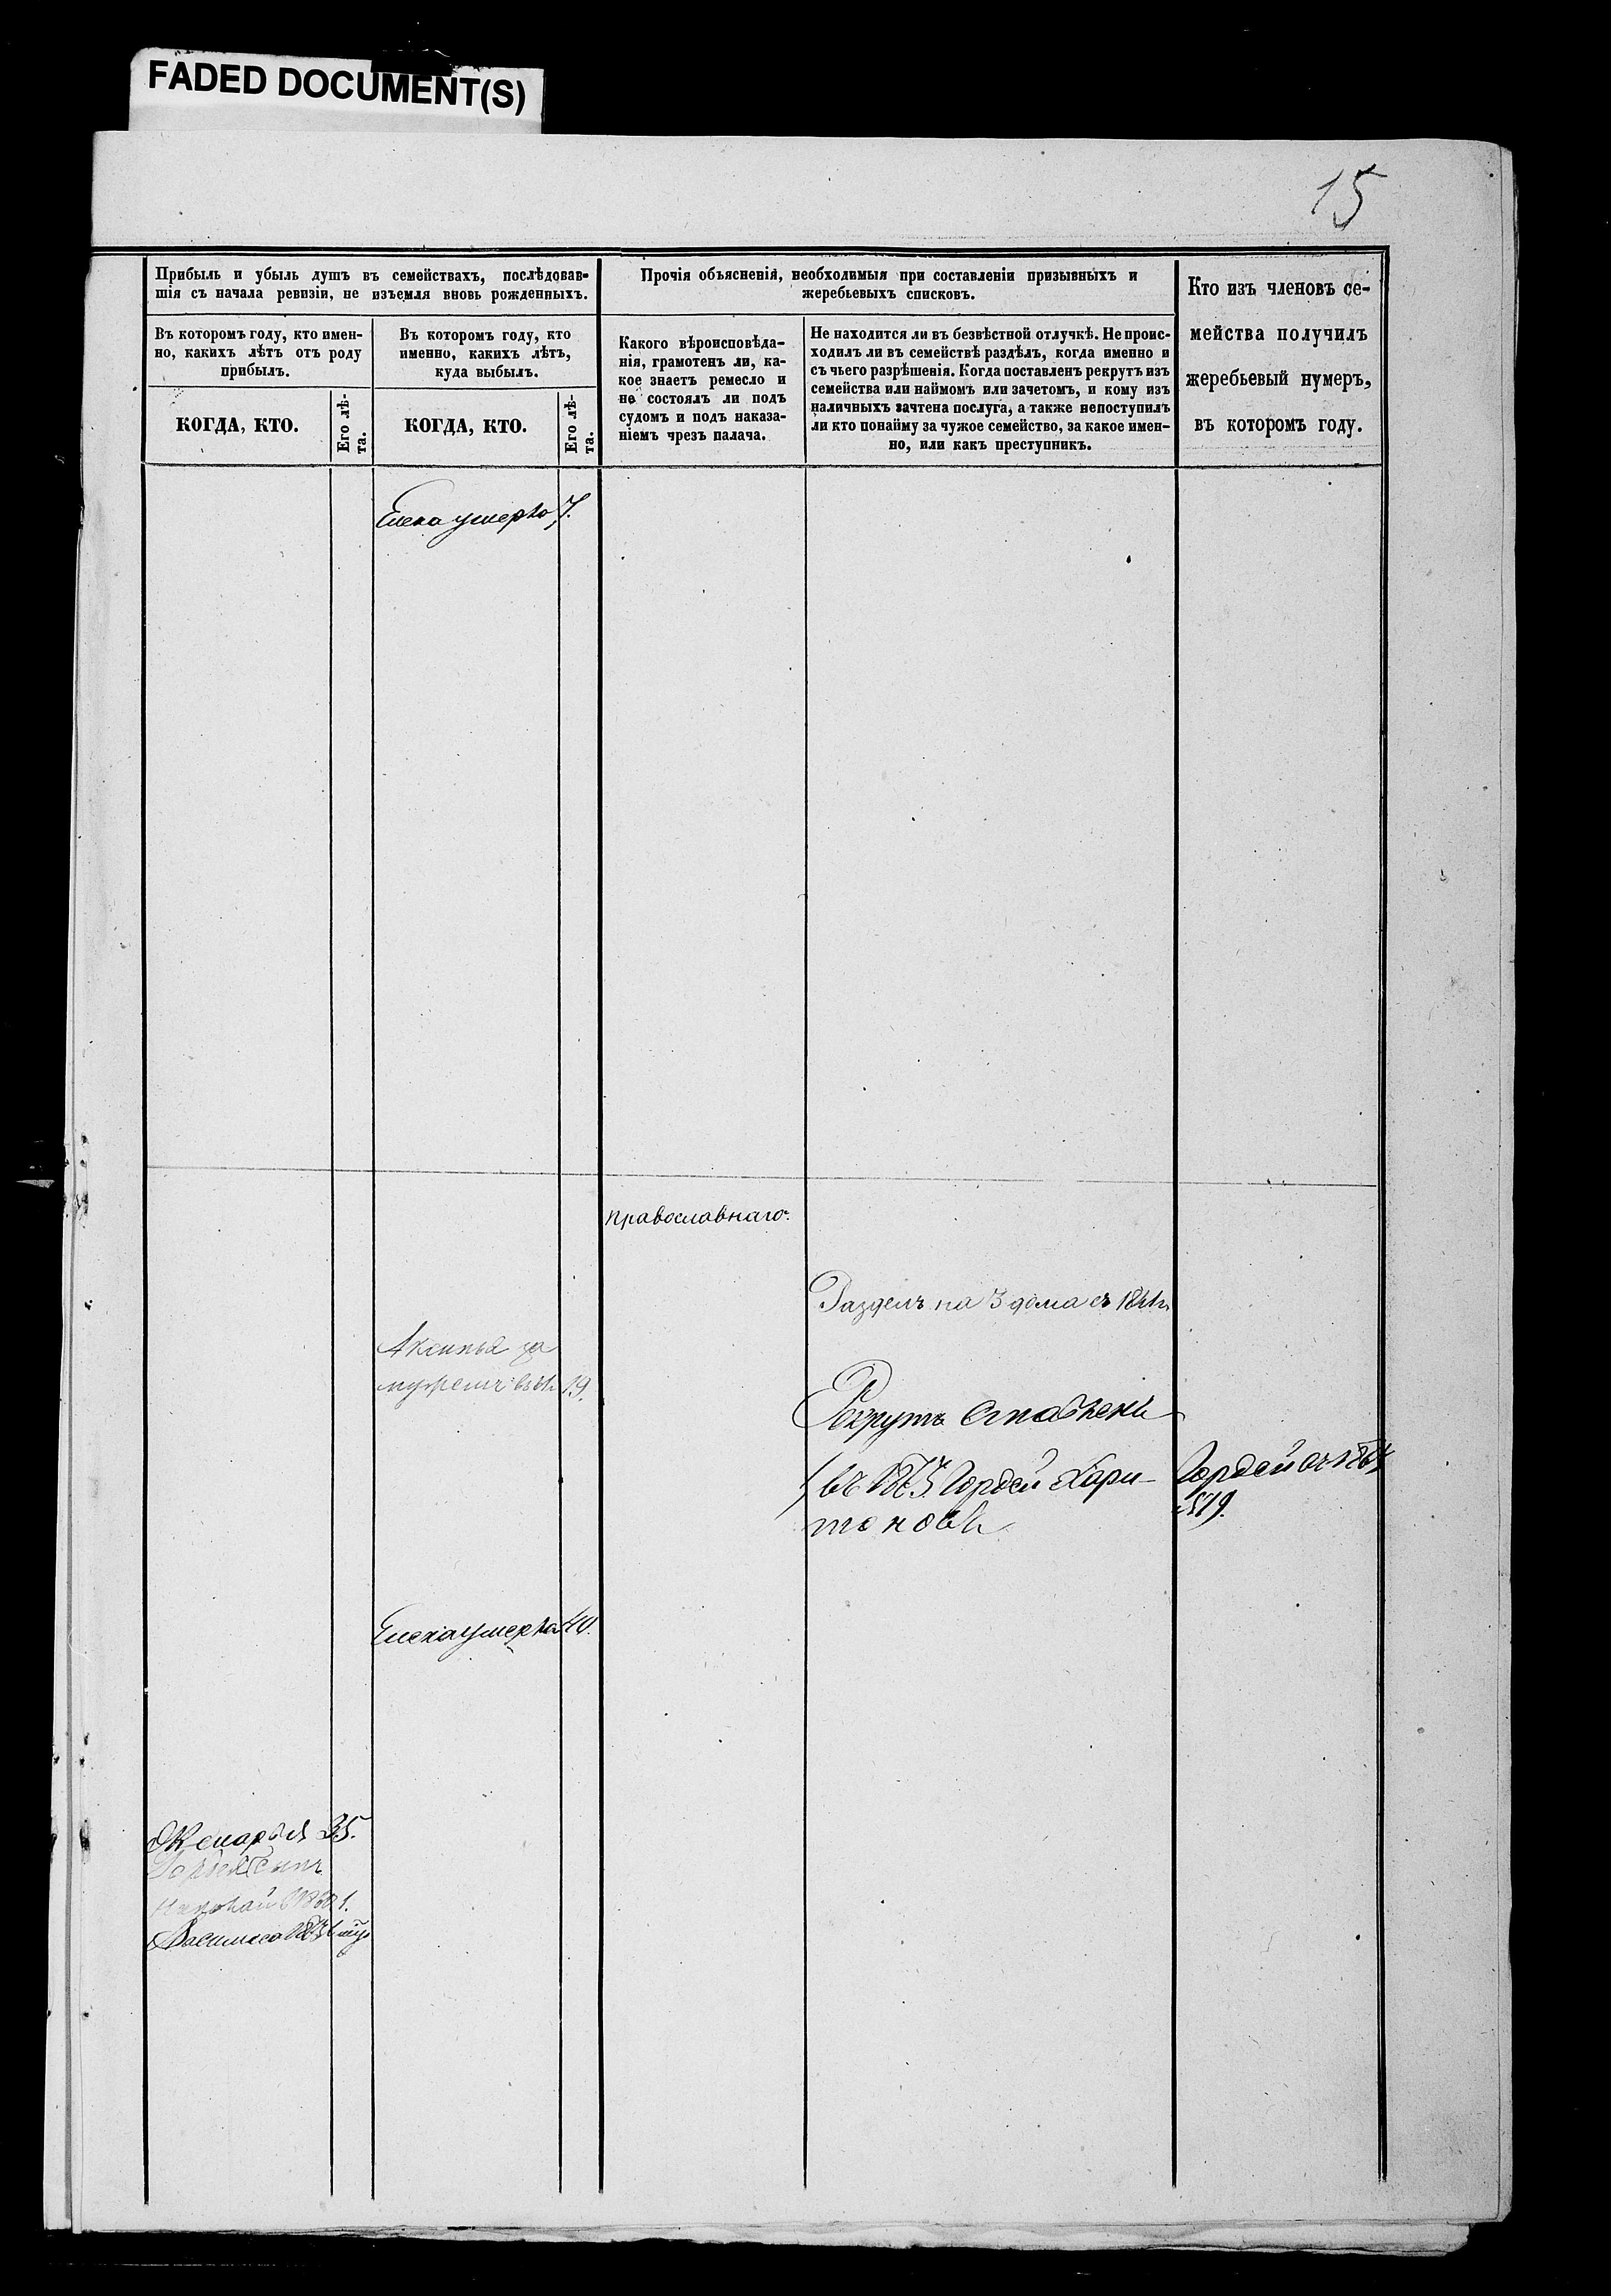 FADED DOCUMENT(S)
15
Прибыль и убыль душъ въ семействахъ, послѣдовав-
шія съ начала ревизіи, не изъемля вновь рожденныхъ.
Прочія объясненія, необходимыя при составленіи призывныхъ и
жеребьевыхъ списковъ.
Кто изъ членовъ се-
мейства получилъ
жеребьевый нумеръ,
въ которомъ году.
Въ которомъ году, кто имен-
но, какихъ лѣтъ отъ роду
прибылъ.
Въ которомъ году, кто
именно, какихъ лѣтъ,
куда выбылъ.
Какого вѣроисповѣда-
нія, грамотенъ ли, ка-
кое знаетъ ремесло и
не состоялъ ли подъ
судомъ и подъ наказа-
ніемъ чрезъ палача.
Не находится ли въ безвѣстной отлучкѣ. Не проис-
ходилъ ли въ семействѣ раздѣлъ, когда именно и
съ чьего разрѣшенія. Когда поставленъ рекрутъ изъ
семейства или наймомъ или зачетомъ, и кому изъ
наличныхъ зачтена послуга, а также непоступилъ
ли кто понайму за чужое семейство, за какое имен-
но, или какъ преступникъ.
КОГДА, КТО.
Его лѣ-
та.
КОГДА, КТО.
Его лѣ-
та.
Елена умерла 7.
православнаго.
Разделъ на 3 дома съ
Аксинья за
19.
Рекрутъ
въ Гордей Хари-
тоновъ
Гордей
Елена умерла 40.
35.
1.